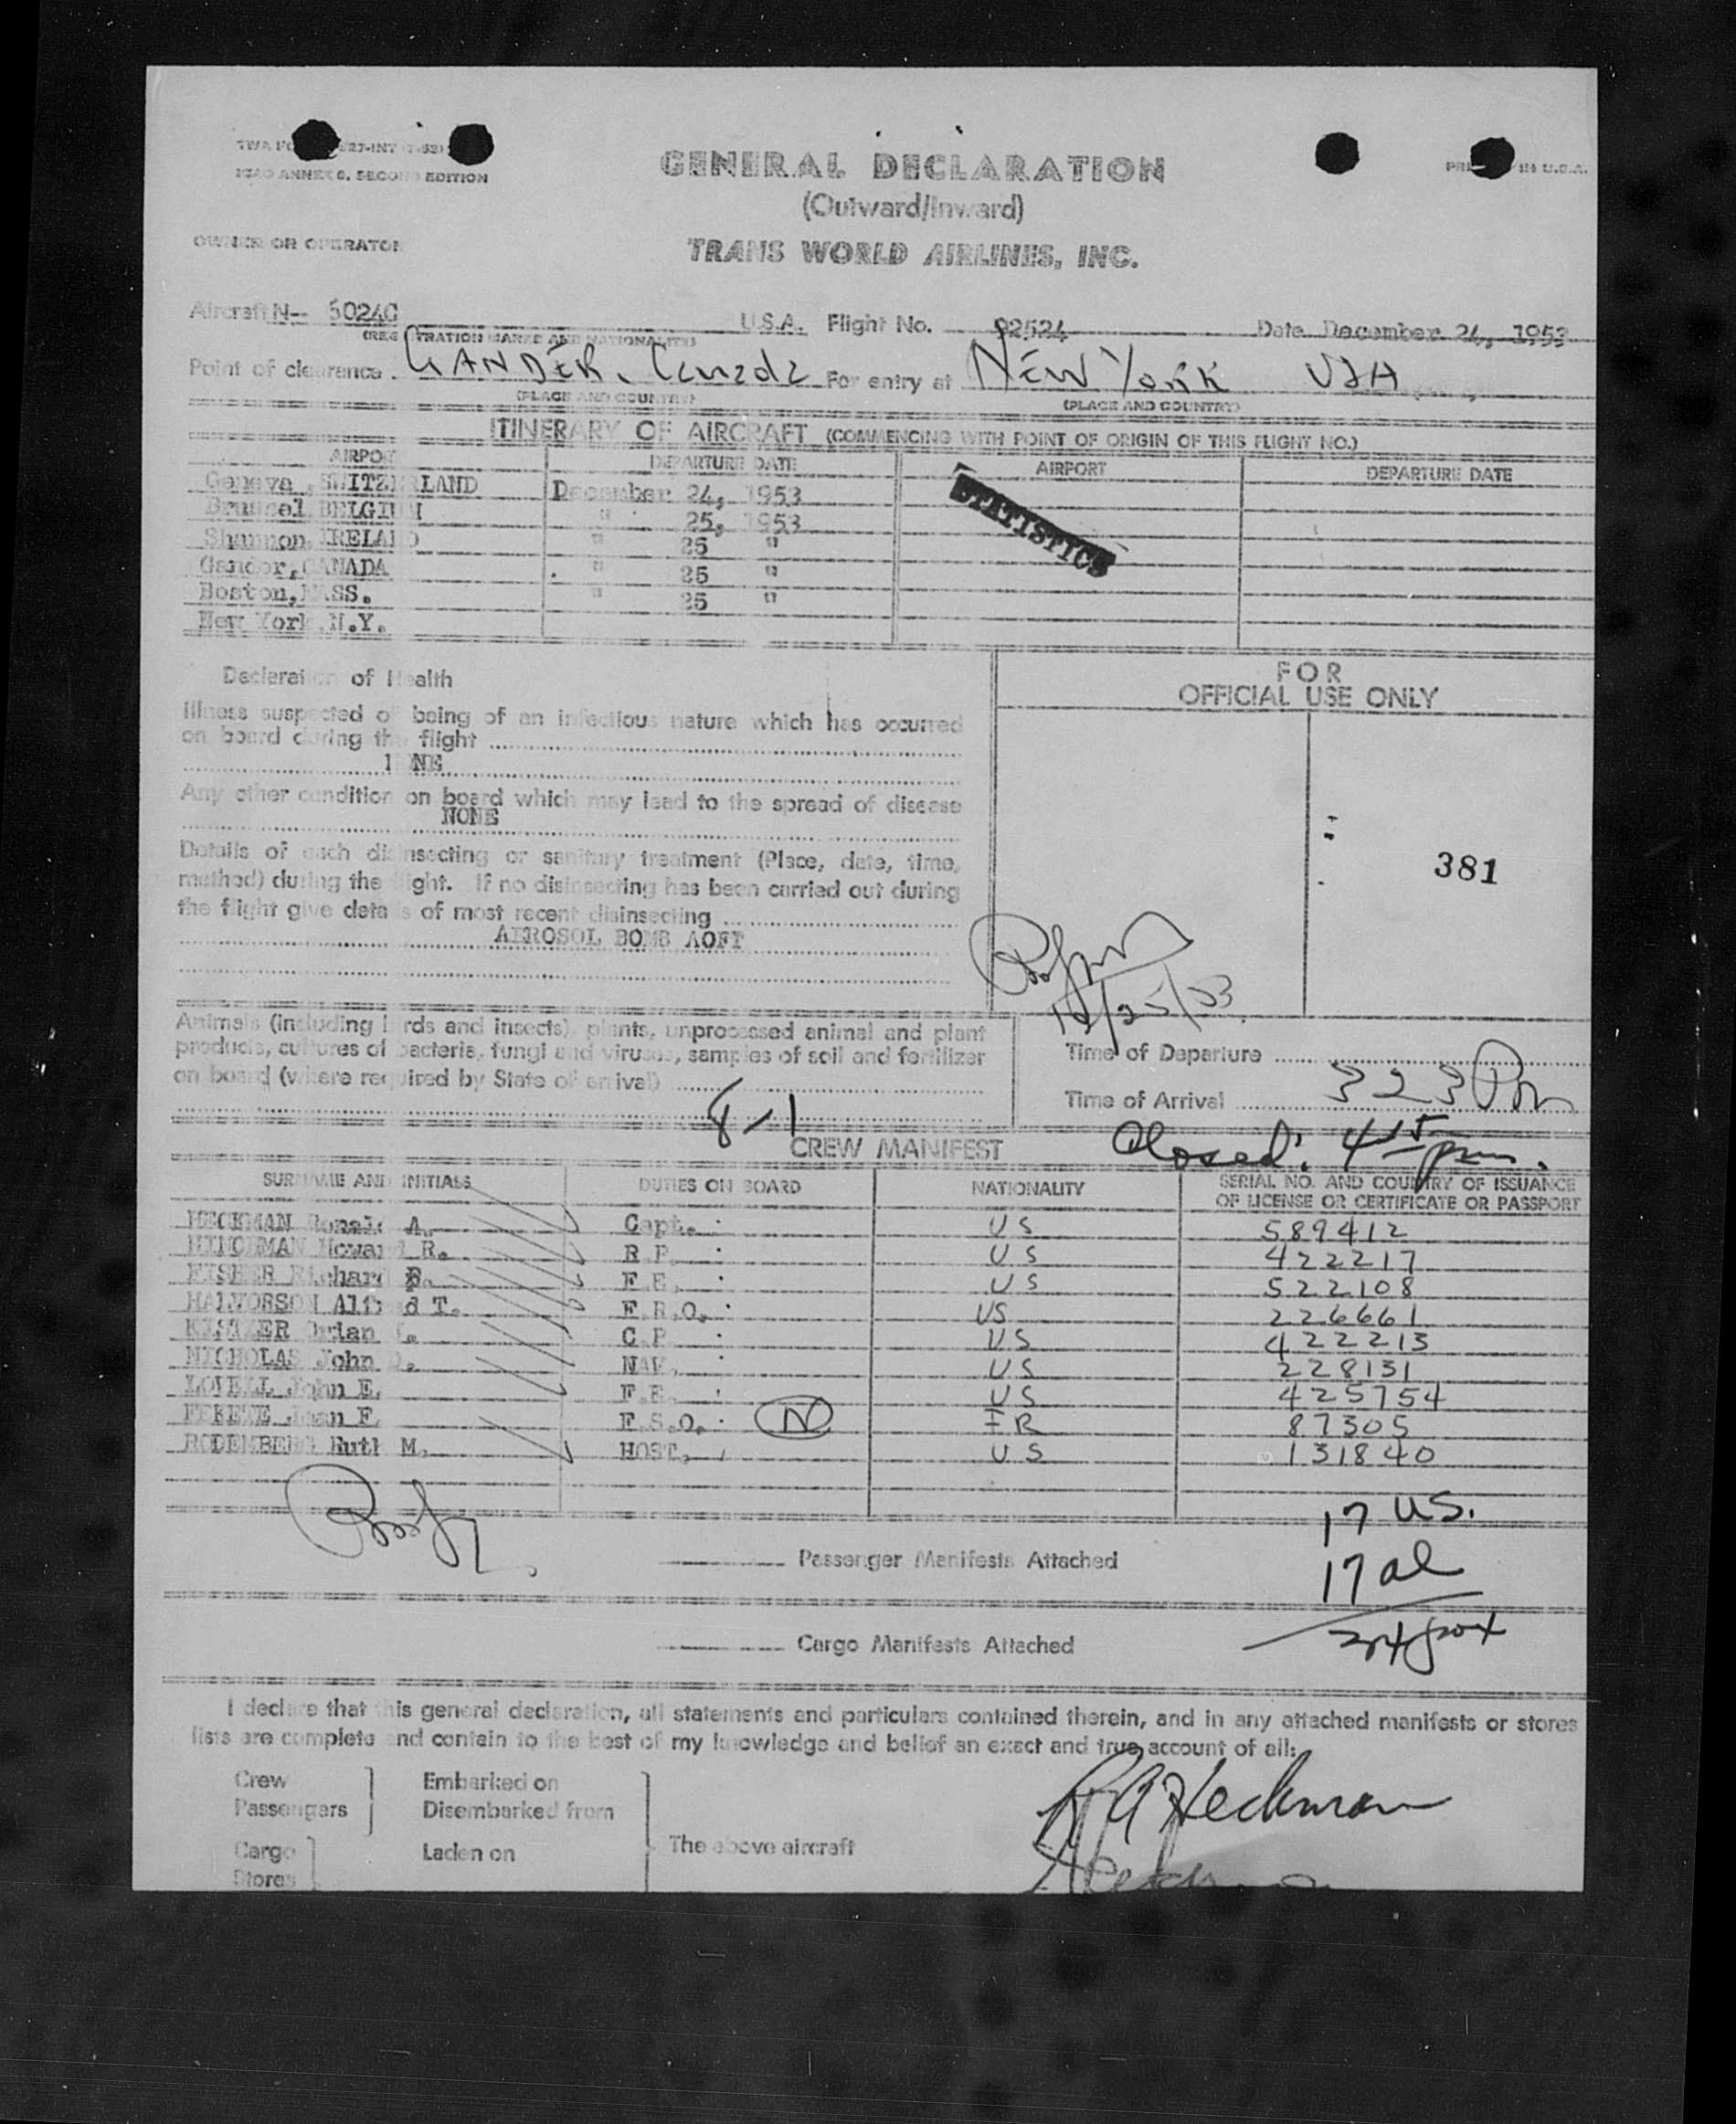 GENERAL DECLARATION
(Outward/Inward)
ANNEX 9, SECOND EDITION
PRINTED IN U.S.A.
OWNER OR OPERATOR
TRANS WORLD AIRLINES, INC.
Aircraft N-- 6024C U.S.A. Flight No. 92524 Date December 24, 1953
(REGISTRATION MARKS AND NATIONALITY)
Point of clearance GANDER, Canada For entry at NEW YORK USA
(PLACE AND COUNTRY) (PLACE AND COUNTRY)
ITINERARY OF AIRCRAFT (COMMENCING WITH POINT OF ORIGIN OF THIS FLIGHT NO.)
AIRPORT DEPARTURE DATE AIRPORT DEPARTURE DATE
Geneva, SWITZERLAND December 24, 1953
Brussel, BELGIUM " 25, 1953
Shannon, IRELAND " 25 "
Gander, CANADA " 25 "
Boston, MASS. " 25 "
New York, N.Y.
STATISTICS
Declaration of Health
FOR
OFFICIAL USE ONLY
Illness suspected of being of an infectious nature which has occurred
on board during the flight
NONE
Any other condition on board which may lead to the spread of disease
NONE
Details of each disinsecting or sanitary treatment (Place, date, time,
method) during the flight. If no disinsecting has been carried out during
the flight give details of most recent disinsecting
AEROSOL BOMB
381
12/25/53
Animals (including birds and insects), plants, unprocessed animal and plant
products, cultures of bacteria, fungi and viruses, samples of soil and fertilizer
on board (where required by State of arrival)
Time of Departure
Time of Arrival 323 Pm
8-1
Closed: 4 15 pm.
CREW MANIFEST
SURNAME AND INITIALS DUTIES ON BOARD NATIONALITY SERIAL NO. AND COUNTRY OF ISSUANCE
OF LICENSE OR CERTIFICATE OR PASSPORT
HECKMAN Ronald A. Capt. US 589412
Howard R. R.P. US 422217
FISHER Richard B. F.E. US 522108
HALVORSON Alfred T. F.R.O. US 226661
Brian C.P. US 422213
NICHOLAS John D. NAV. US 228131
John E. F.E. US 425754
F. F.S.O. N IR 87305
RODEMBERG Ruth M. HOST. US 131840
17 US.
Passenger Manifests Attached
17 al
Cargo Manifests Attached
34
I declare that this general declaration, all statements and particulars contained therein, and in any attached manifests or stores
lists are complete and contain to the best of my knowledge and belief an exact and true account of all:
Crew Embarked on
Passengers Disembarked from
Cargo Laden on The above aircraft
Stores
R A Heckman